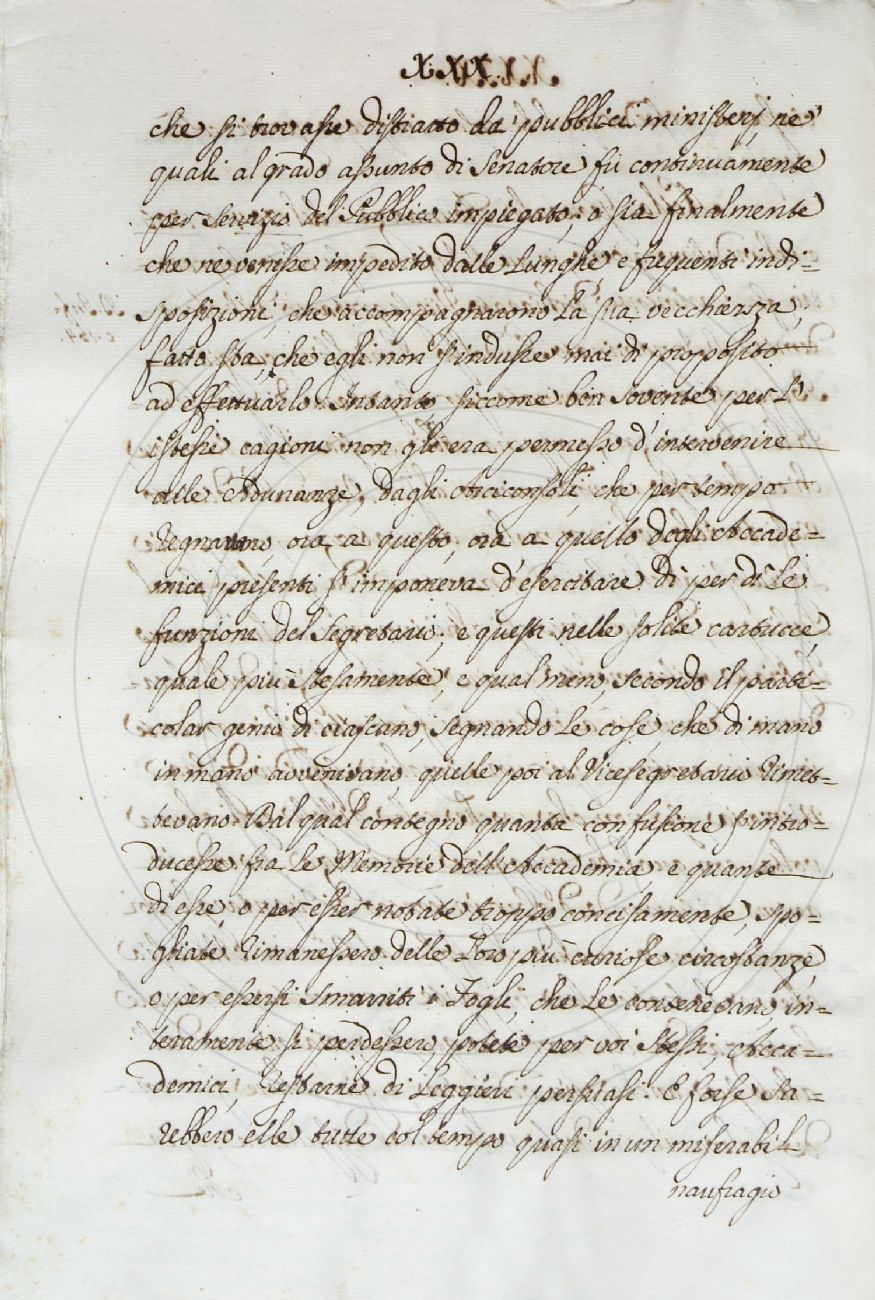 XXX.
che si trovasse distratto da' pubblici ministerj, ne'
quali al grado assunto di Senatore fù continuamente
per servizio del Pubblico impiegato; o sia finalmente
che ne venisse impedito dalle lunghe, e frequenti indi=
sposizioni, che accompagnarono la sua vecchiezza,
fatto sta, che egli non s'indusse mai di proposito
ad effettuarlo. Intanto, siccome ben sovente per l'
istesse cagioni non gli era permesso d'intervenire
alle Adunanze, dagli Arciconsoli, che per tempo
regnarono, ora a questo, ora a quello degli Accade=
mici presenti s'imponeva d'esercitare di per dì le
funzioni del Segretario; e questi nelle solite cartucce,
quale più stesamente, e qual meno, secondo il parti=
colar genio di ciascuno, segnando le cose, che di mano
in mano avvenivano, quelle poi al Vicesegretario rimet=
tevano. Dal qual contegno quanta confusione s'intro=
ducesse fra le Memorie dell'Accademia e quante
di esse, o per esser notate troppo concisamente, spo=
gliate rimanessero delle loro più curiose circostanze,
o per essersi smarriti i Fogli, che le contenevano, in=
teramente si perdessero, potete per voi stessi, Acca=
demici, restarne di leggieri persuasi. E forse sa=
rebbero elle tutte col tempo quasi in un miserabil
naufragio